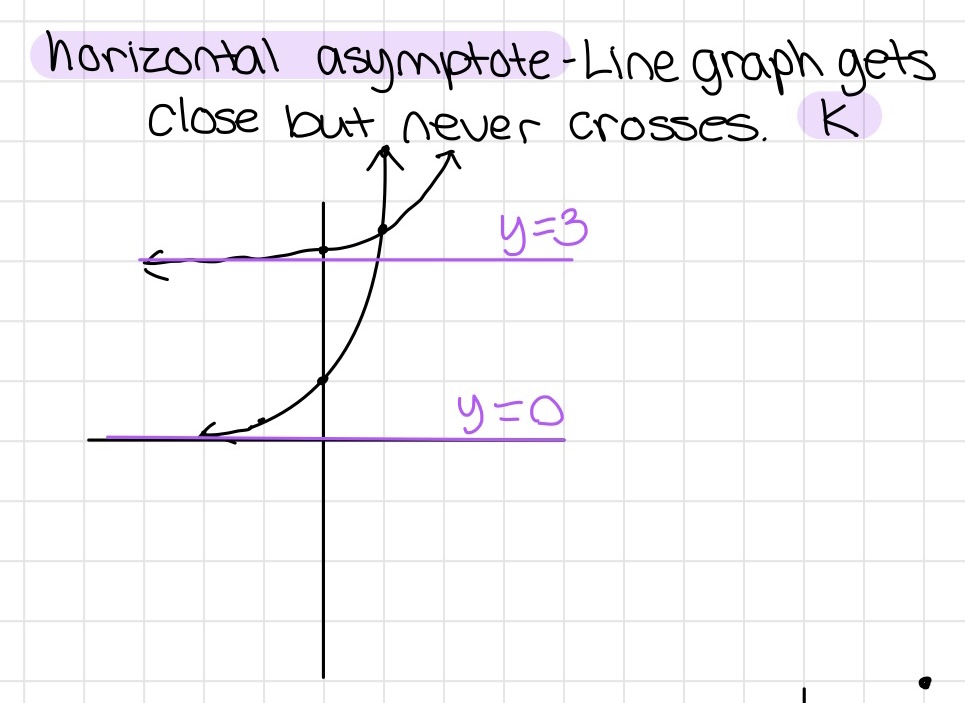 horizontal asymptote - Line graph gets
close but never crosses. K
y=3
y=0